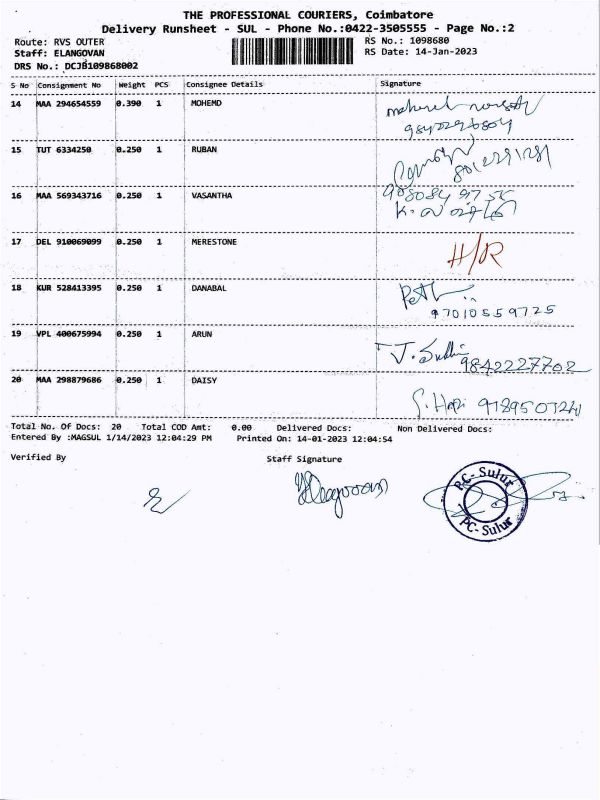 THE PROFESSIONAL COURIERS, Coimbatore
Delivery Runsheet - SUL - Phone No.:0422-3505555 - Page No.:2
Route: RVS OUTER
RS No.: 1098680
Staff: ELANGOVAN
RS Date: 14-Jan-2023
DRS No.: DCJB109868002
S No Consignment No Weight PCS Consignee Details Signature
14 MAA 294654559 0.390 1 MOHEMD
15 TUT 6334250 0.250 1 RUBAN
16 MAA 569343716 0.250 1 VASANTHA
17 DEL 910069099 0.250 1 MERESTONE H/R
18 KUR 528413395 0.250 1 DANABAL
97010559725
19 VPL 400675994 0.250 1 ARUN J. Sudhi
9842227702
20 MAA 298879686 0.250 1 DAISY
Total No. Of Docs: 20 Total COD Amt: 0.00 Delivered Docs: Non Delivered Docs:
Entered By :MAGSUL 1/14/2023 12:04:29 PM Printed On: 14-01-2023 12:04:54
Verified By Staff Signature
PC-Sulur
PC-Sulur